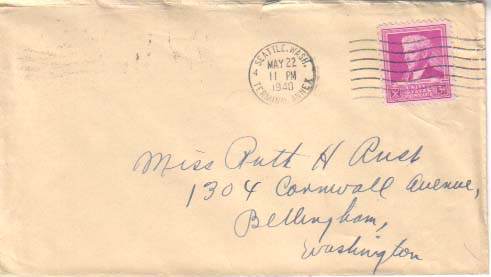 SEATTLE, WASH.
4
MAY 22
11 PM
1940
TERMINAL ANNEX
UNITED
STATES
POSTAGE
Miss Ruth H Rust
1304 Cornwall Avenue,
Bellingham,
Washington